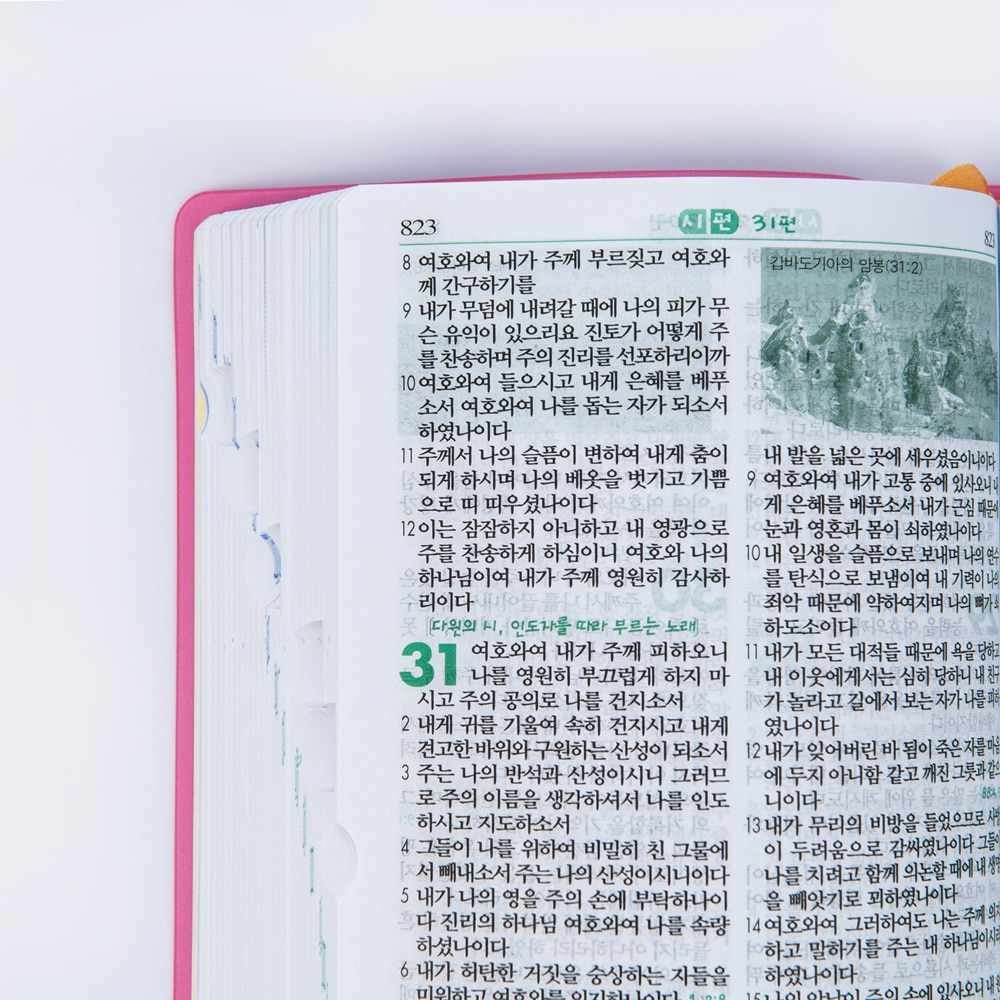 823
시편 31편
8 여호와여 내가 주께 부르짖고 여호와
께 간구하기를
9 내가 무덤에 내려갈 때에 나의 피가 무
슨 유익이 있으리요 진토가 어떻게 주
를 찬송하며 주의 진리를 선포하리이까
10 여호와여 들으시고 내게 은혜를 베푸
소서 여호와여 나를 돕는 자가 되소서
하였나이다
11 주께서 나의 슬픔이 변하여 내게 춤이
되게 하시며 나의 베옷을 벗기고 기쁨
으로 띠 띠우셨나이다
12 이는 잠잠하지 아니하고 내 영광으로
주를 찬송하게 하심이니 여호와 나의
하나님이여 내가 주께 영원히 감사하
리이다
[다윗의 시, 인도자를 따라 부르는 노래]
31 여호와여 내가 주께 피하오니
나를 영원히 부끄럽게 하지 마
시고 주의 공의로 나를 건지소서
2 내게 귀를 기울여 속히 건지시고 내게
견고한 바위와 구원하는 산성이 되소서
3 주는 나의 반석과 산성이시니 그러므
로 주의 이름을 생각하셔서 나를 인도
하시고 지도하소서
4 그들이 나를 위하여 비밀히 친 그물에
서 빼내소서 주는 나의 산성이시니이다
5 내가 나의 영을 주의 손에 부탁하나이
다 진리의 하나님 여호와여 나를 속량
하셨나이다
6 내가 허탄한 거짓을 숭상하는 자들을
미워하고 여호와를 의지하나이다
갑바도기아의 암봉(31:2)
내 발을 넓은 곳에 세우셨음이니이다
9 여호와여 내가 고통 중에 있사오니 내
게 은혜를 베푸소서 내가 근심 때문에
눈과 영혼과 몸이 쇠하였나이다
10 내 일생을 슬픔으로 보내며 나의 연수
를 탄식으로 보냄이여 내 기력이 나의
죄악 때문에 약하여지며 나의 뼈가 쇠
하도소이다
11 내가 모든 대적들 때문에 욕을 당하고
내 이웃에게서는 심히 당하니 내 친구
가 놀라고 길에서 보는 자가 나를 피하
였나이다
12 내가 잊어버린 바 됨이 죽은 자를 마음
에 두지 아니함 같고 깨진 그릇과 같으
니이다
13 내가 무리의 비방을 들었으므로 사방
이 두려움으로 감싸였나이다 그들이
나를 치려고 함께 의논할 때에 내 생명
을 빼앗기로 꾀하였나이다
14 여호와여 그러하여도 나는 주께 의지
하고 말하기를 주는 내 하나님이시라
하였나이다
15 나의 앞날이 주의 손에 있사오니 내